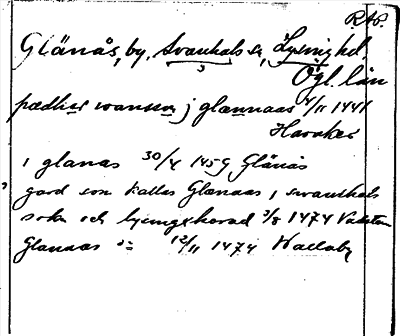 RAP.
Glänås, by, Svanhals sn, Lysings hd.
Ögl. län
pædher swansson j glænnaas 4/11 1441
Haraker
i glanas 30/4 1459 Glänås
gard som kallas Glænaas i swanhals
sokn och lysingxhærad 3/8 1474 Vadstena
Glanaas 12/11 1474 Wallaby